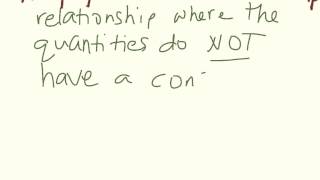 relationship where the
quantities do NOT
have a con